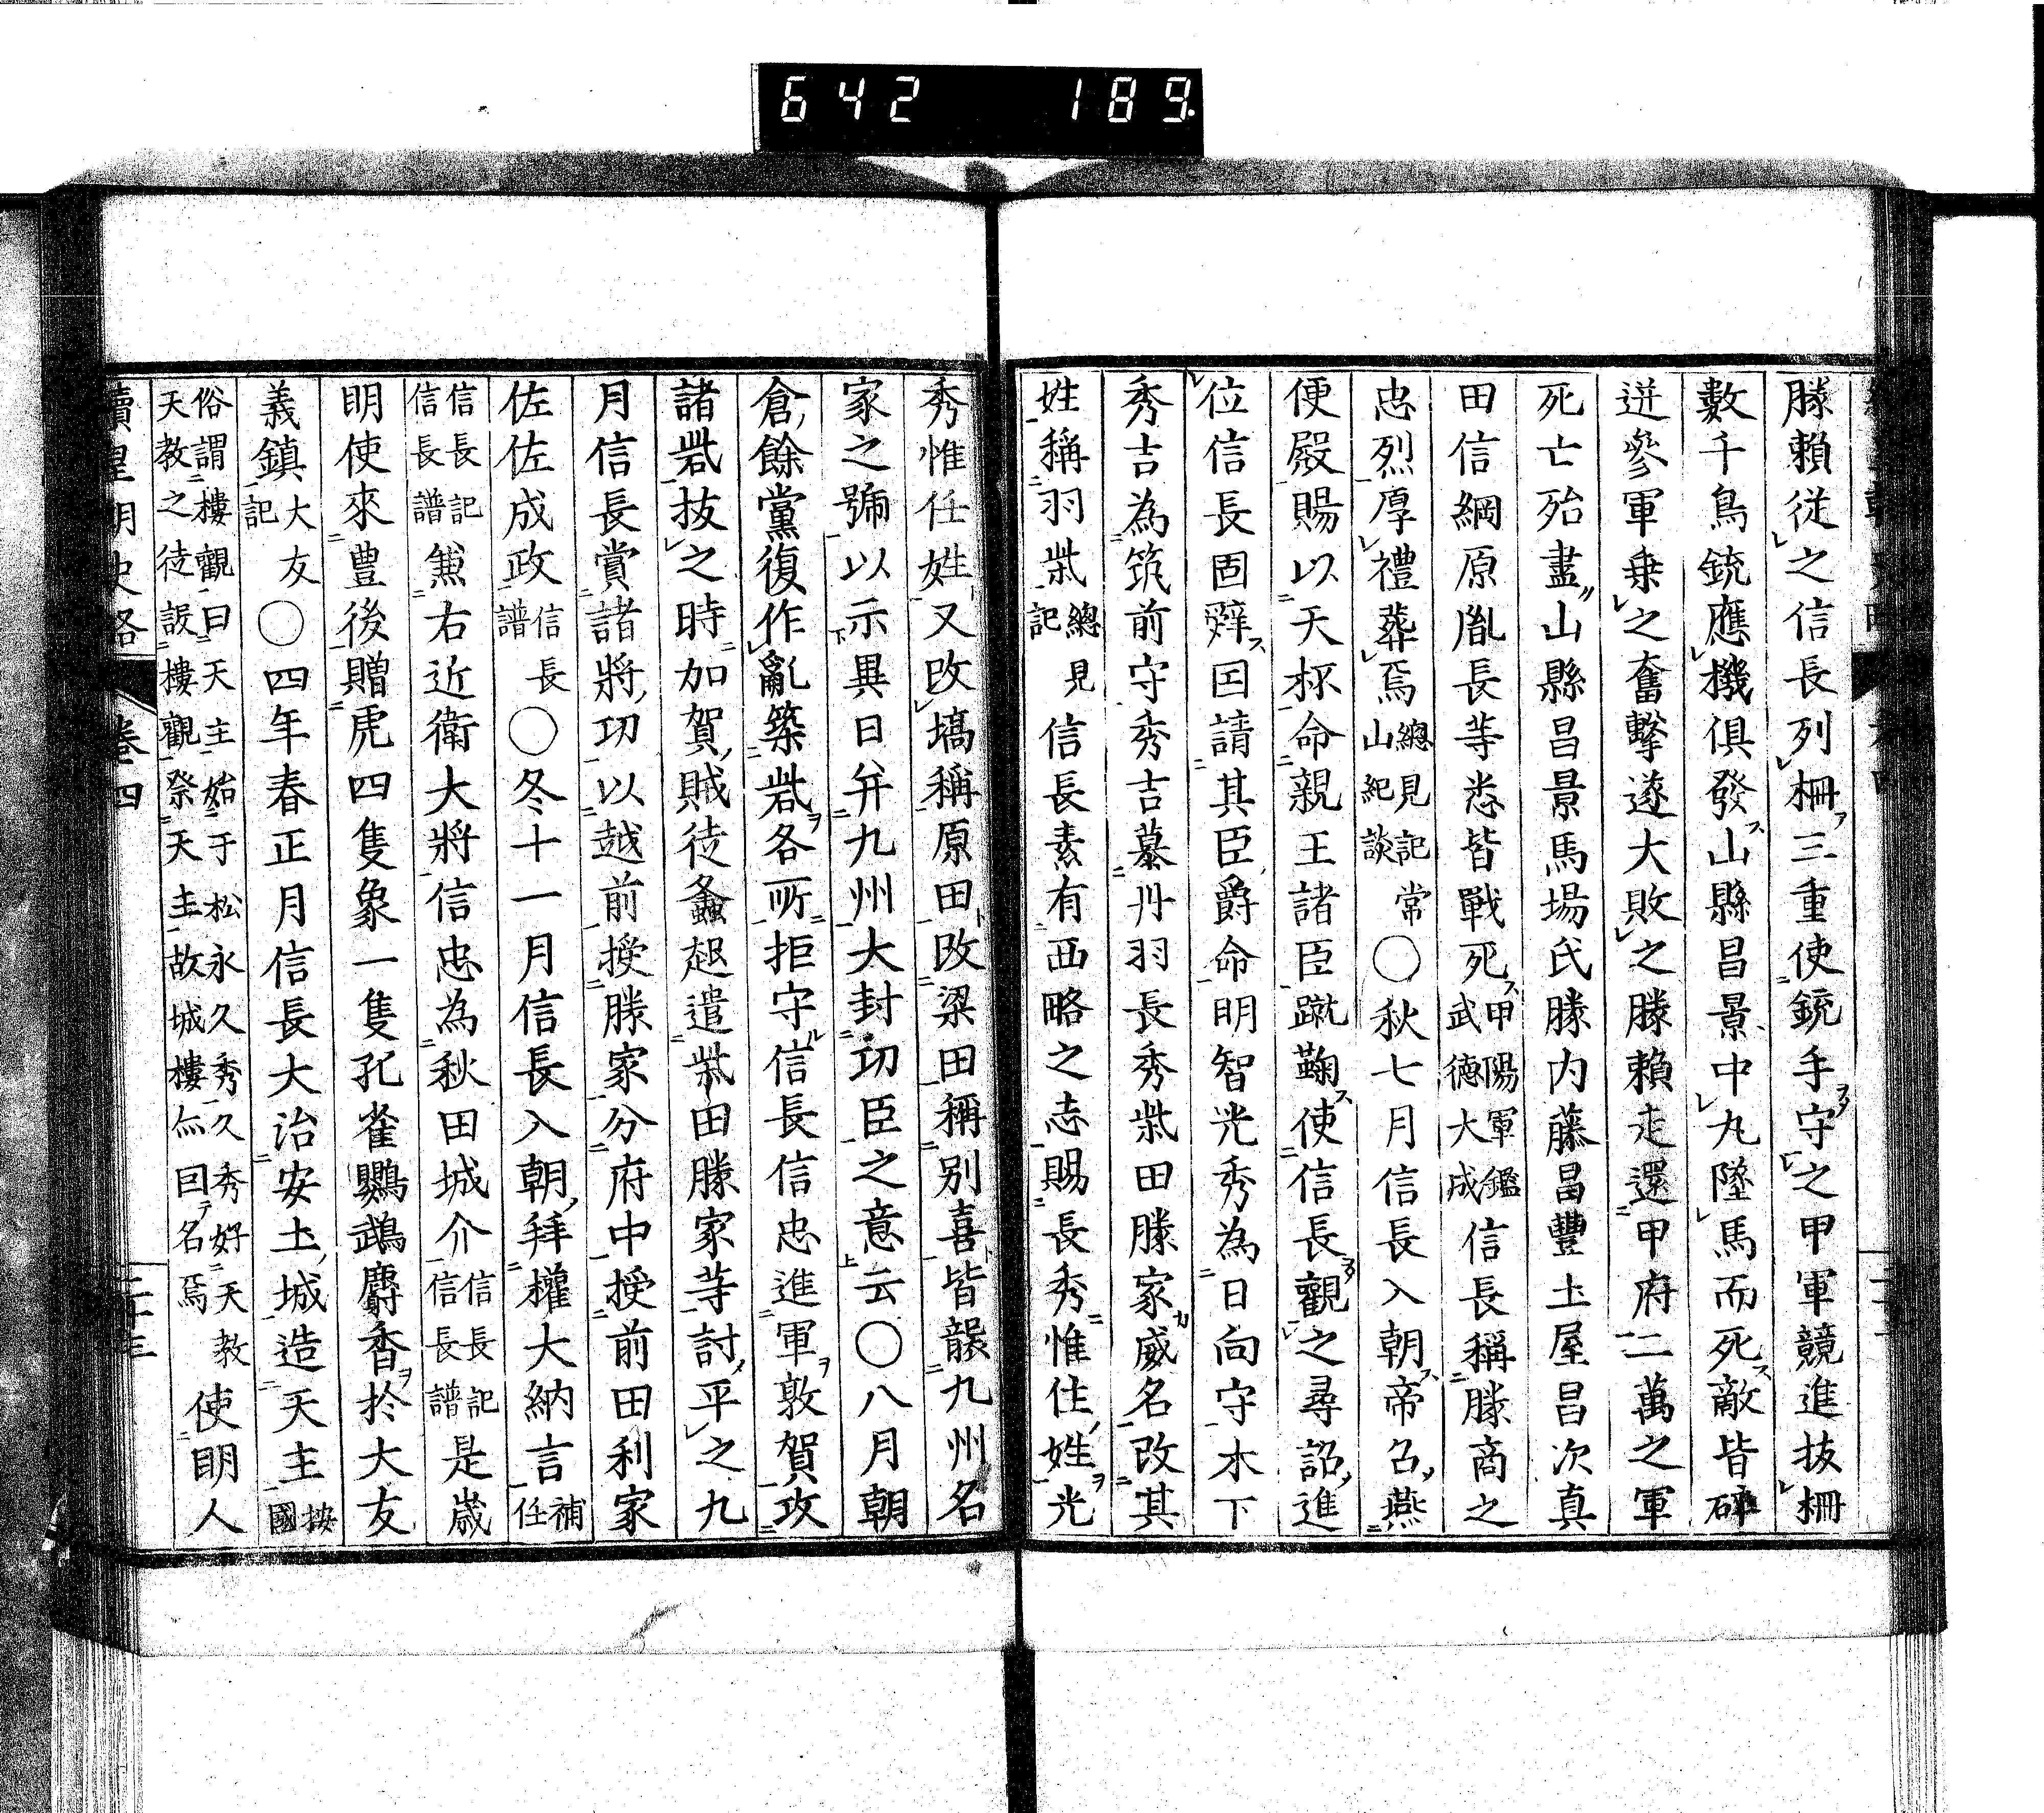 642 189
勝賴從之信長列柵三重使銃手守之甲軍競進拔柵
數千鳥銃應機俱發山縣昌景中丸墜馬而死敵皆碎
迸參軍乗之奮擊遂大敗之勝賴走還甲府二萬之軍
死亡殆盡山縣昌景馬場氏勝内藤昌豐土屋昌次真
田信綱原胤長等悉皆戰死甲陽軍鑑武德大成信長稱勝商之
忠烈厚禮葬焉總見記常山紀談〇秋七月信長入朝帝召燕
便殿賜以天杯命親王諸臣蹴鞠使信長觀之尋詔進
位信長固辭因請其臣爵命明智光秀為日向守木下
秀吉為筑前守秀吉慕丹羽長秀柴田勝家威名改其
姓稱羽柴總見記信長素有西略之志賜長秀惟住姓光
秀惟任姓又改塙稱原田改梁田稱別喜皆襲九州名
家之號以示異日并九州大封功臣之意云〇八月朝
倉餘黨復作亂築砦各所拒守信長信忠進軍敦賀攻
諸砦拔之時加賀賊徒蠭起遣柴田勝家等討平之九
月信長賞諸將功以越前授勝家分府中授前田利家
佐佐成政信長譜〇冬十一月信長入朝拜權大納言補任
信長記信長譜兼右近衛大將信忠為秋田城介信長記信長譜是歲
明使來豊後贈虎四隻象一隻孔雀鸚鵡麝香於大友
義鎮大友記〇四年春正月信長大治安土城造天主按國
俗謂樓觀曰天主始于松永久秀久秀好天教天教之徒設樓觀祭天主故城樓亦因名焉使明人
續皇朝史略 卷四